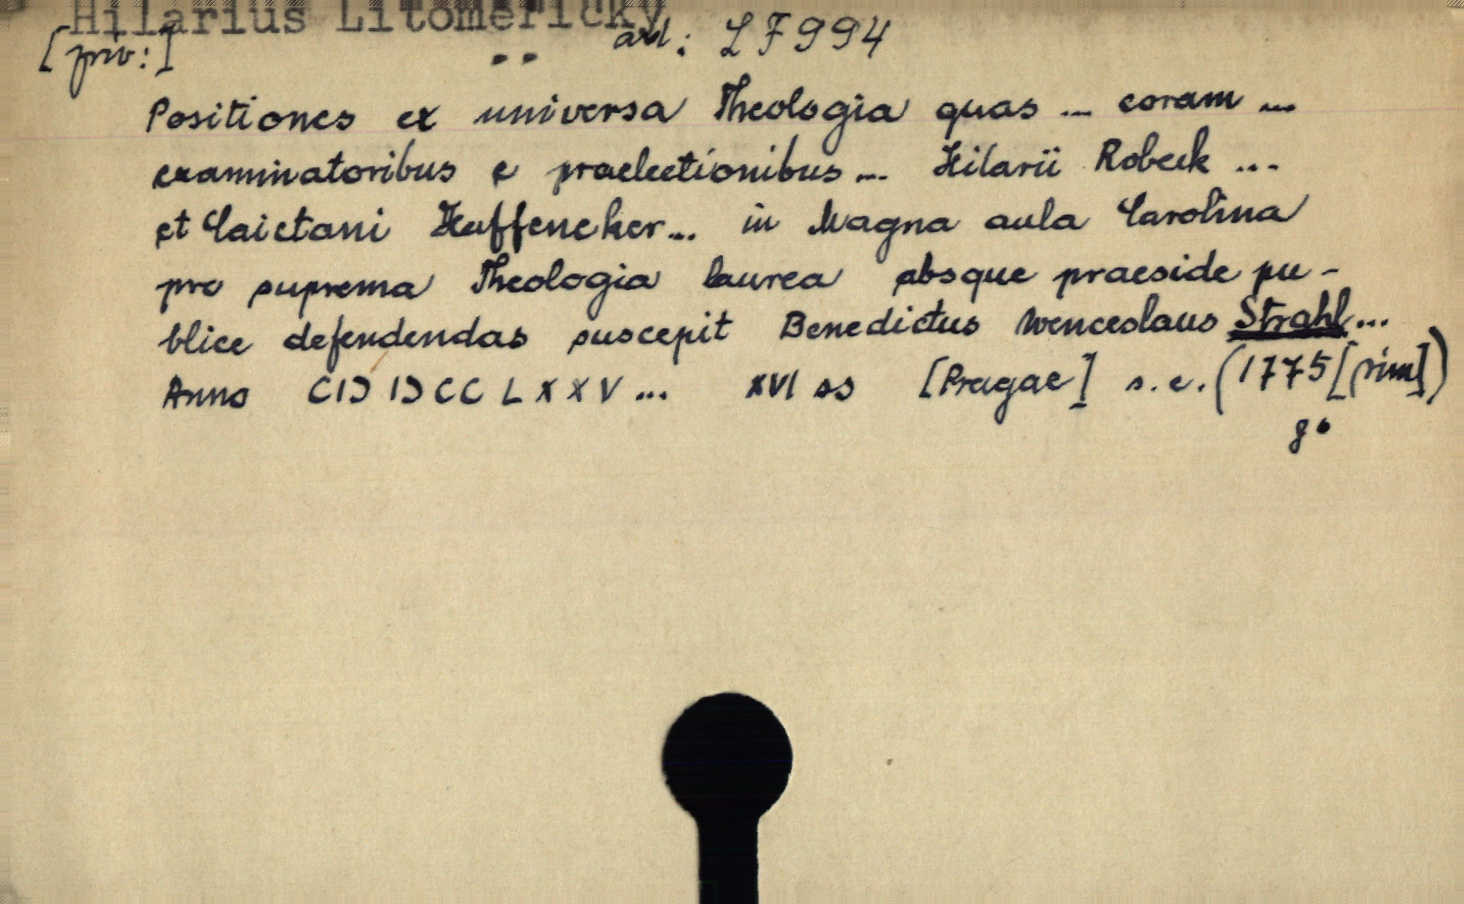 Hilarius Litoměřický
[priv:] ad: LF994
Positiones ex universa Theologia quas ... coram ...
examinatoribus e praelectionibus ... Hilarii Robeck ...
et Caietani Huffeneker ... in Magna aula Carolina
pro suprema Theologia laurea absque praeside pu-
blice defendendas suscepit Benedictus Wenceslaus Strahl ...
Anno CIↃ IↃCC L X X V ... XVI ss [Pragae] s.e. (1775 [rim])
8°